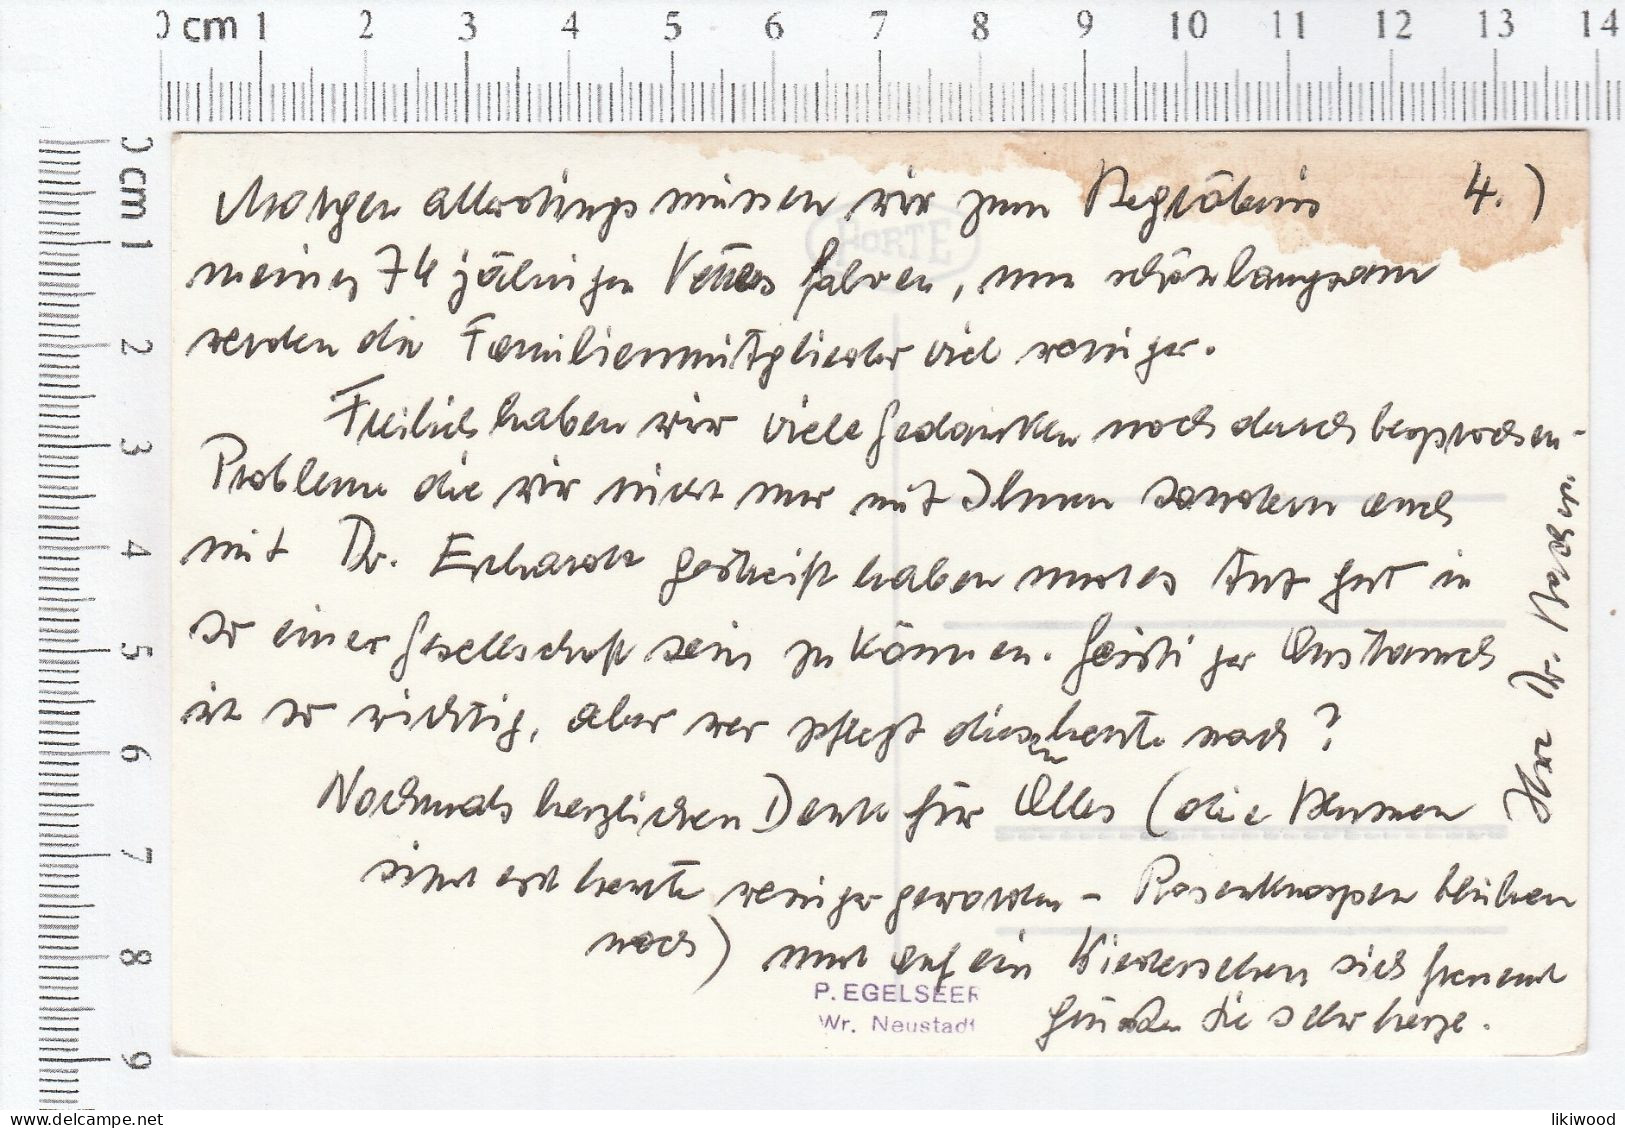 0 cm 1 2 3 4 5 6 7 8 9 10 11 12 13 14
0 cm 1 2 3 4 5 6 7 8 9
PORTE
Morgen allerdings müssen wir zum Begräbnis 4.)
meines 74 jährigen Vetters fahren, nun schön langsam
werden die Familienmitglieder viel weniger.
Freilich haben wir viele Gedanken noch durch besprochen -
Probleme die wir nicht nur mit Ihnen sondern auch
mit Dr. Erhardt gestreift haben und es tut gut in
so einer Gesellschaft sein zu können. Geistiger Austausch
ist so wichtig, aber wer pflegt diesen heute noch?
Nochmals herzlichen Dank für Alles (die Blumen
sind erst heute weniger geworden - Rosenknospen blühen
noch) und auf ein Wiedersehen sich freuend
grüßen Sie sehr herzl.
Ihr Dr.
P. EGELSEER
Wr. Neustadt
likiwood